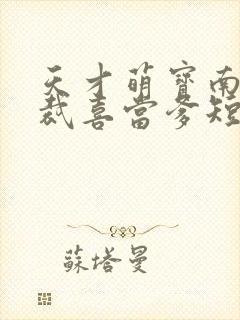 天才萌寶南
裁喜當爹短
蘇塔曼